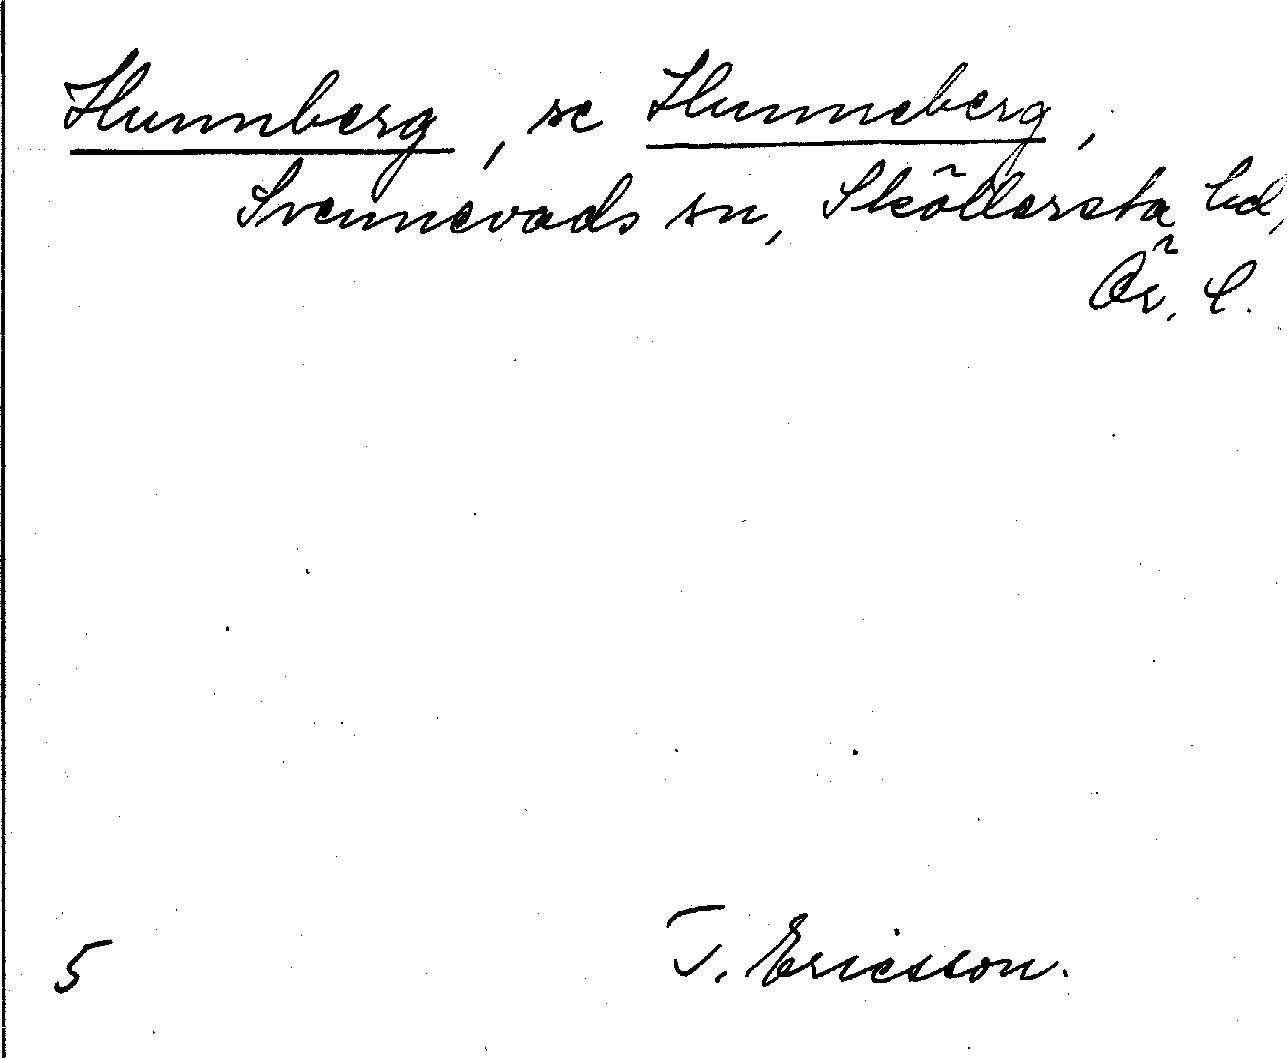 Hunnberg, se Hunneberg,
Svennevads sn, Sköllersta hd,
Ör. l.
5 T. Ericsson.